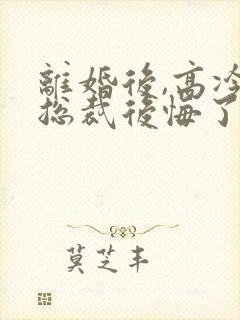 離婚後,高冷
總裁後悔了
莫芝丰